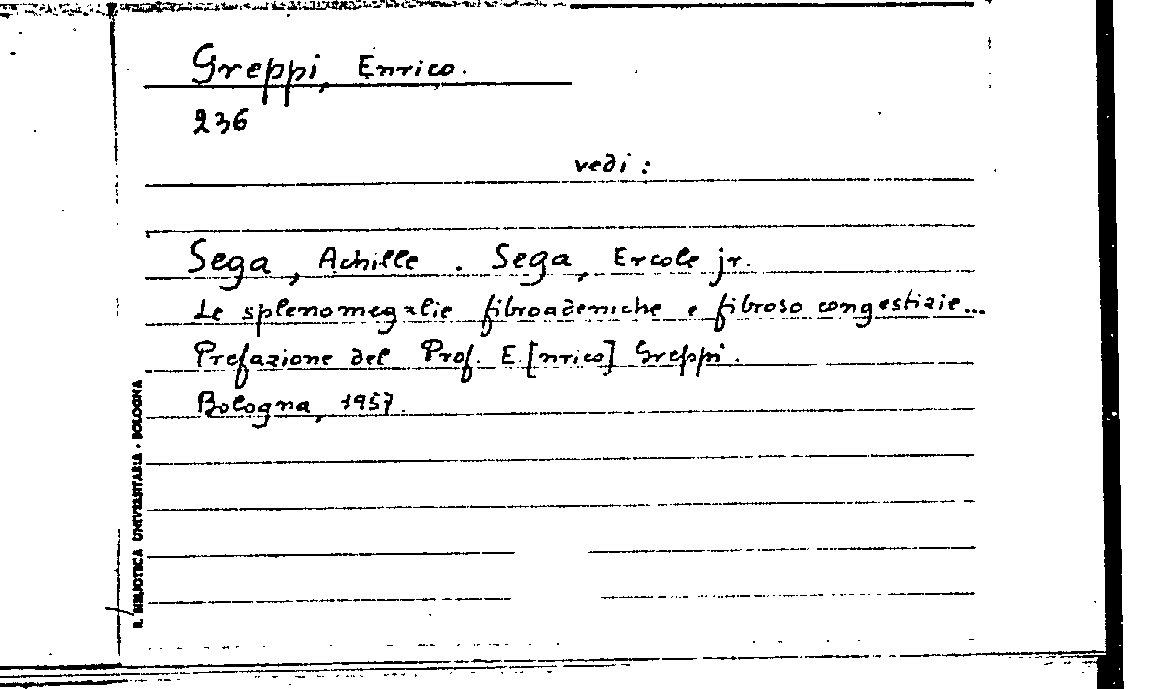 Greppi, Enrico.
236
vedi :
Sega, Achille. Sega, Ercole jr.
Le splenomegalie fibroadeniche e fibroso congestizie...
Prefazione del Prof. E[nrico] Greppi.
Bologna, 1957.
R. BIBLIOTECA UNIVERSITARIA - BOLOGNA